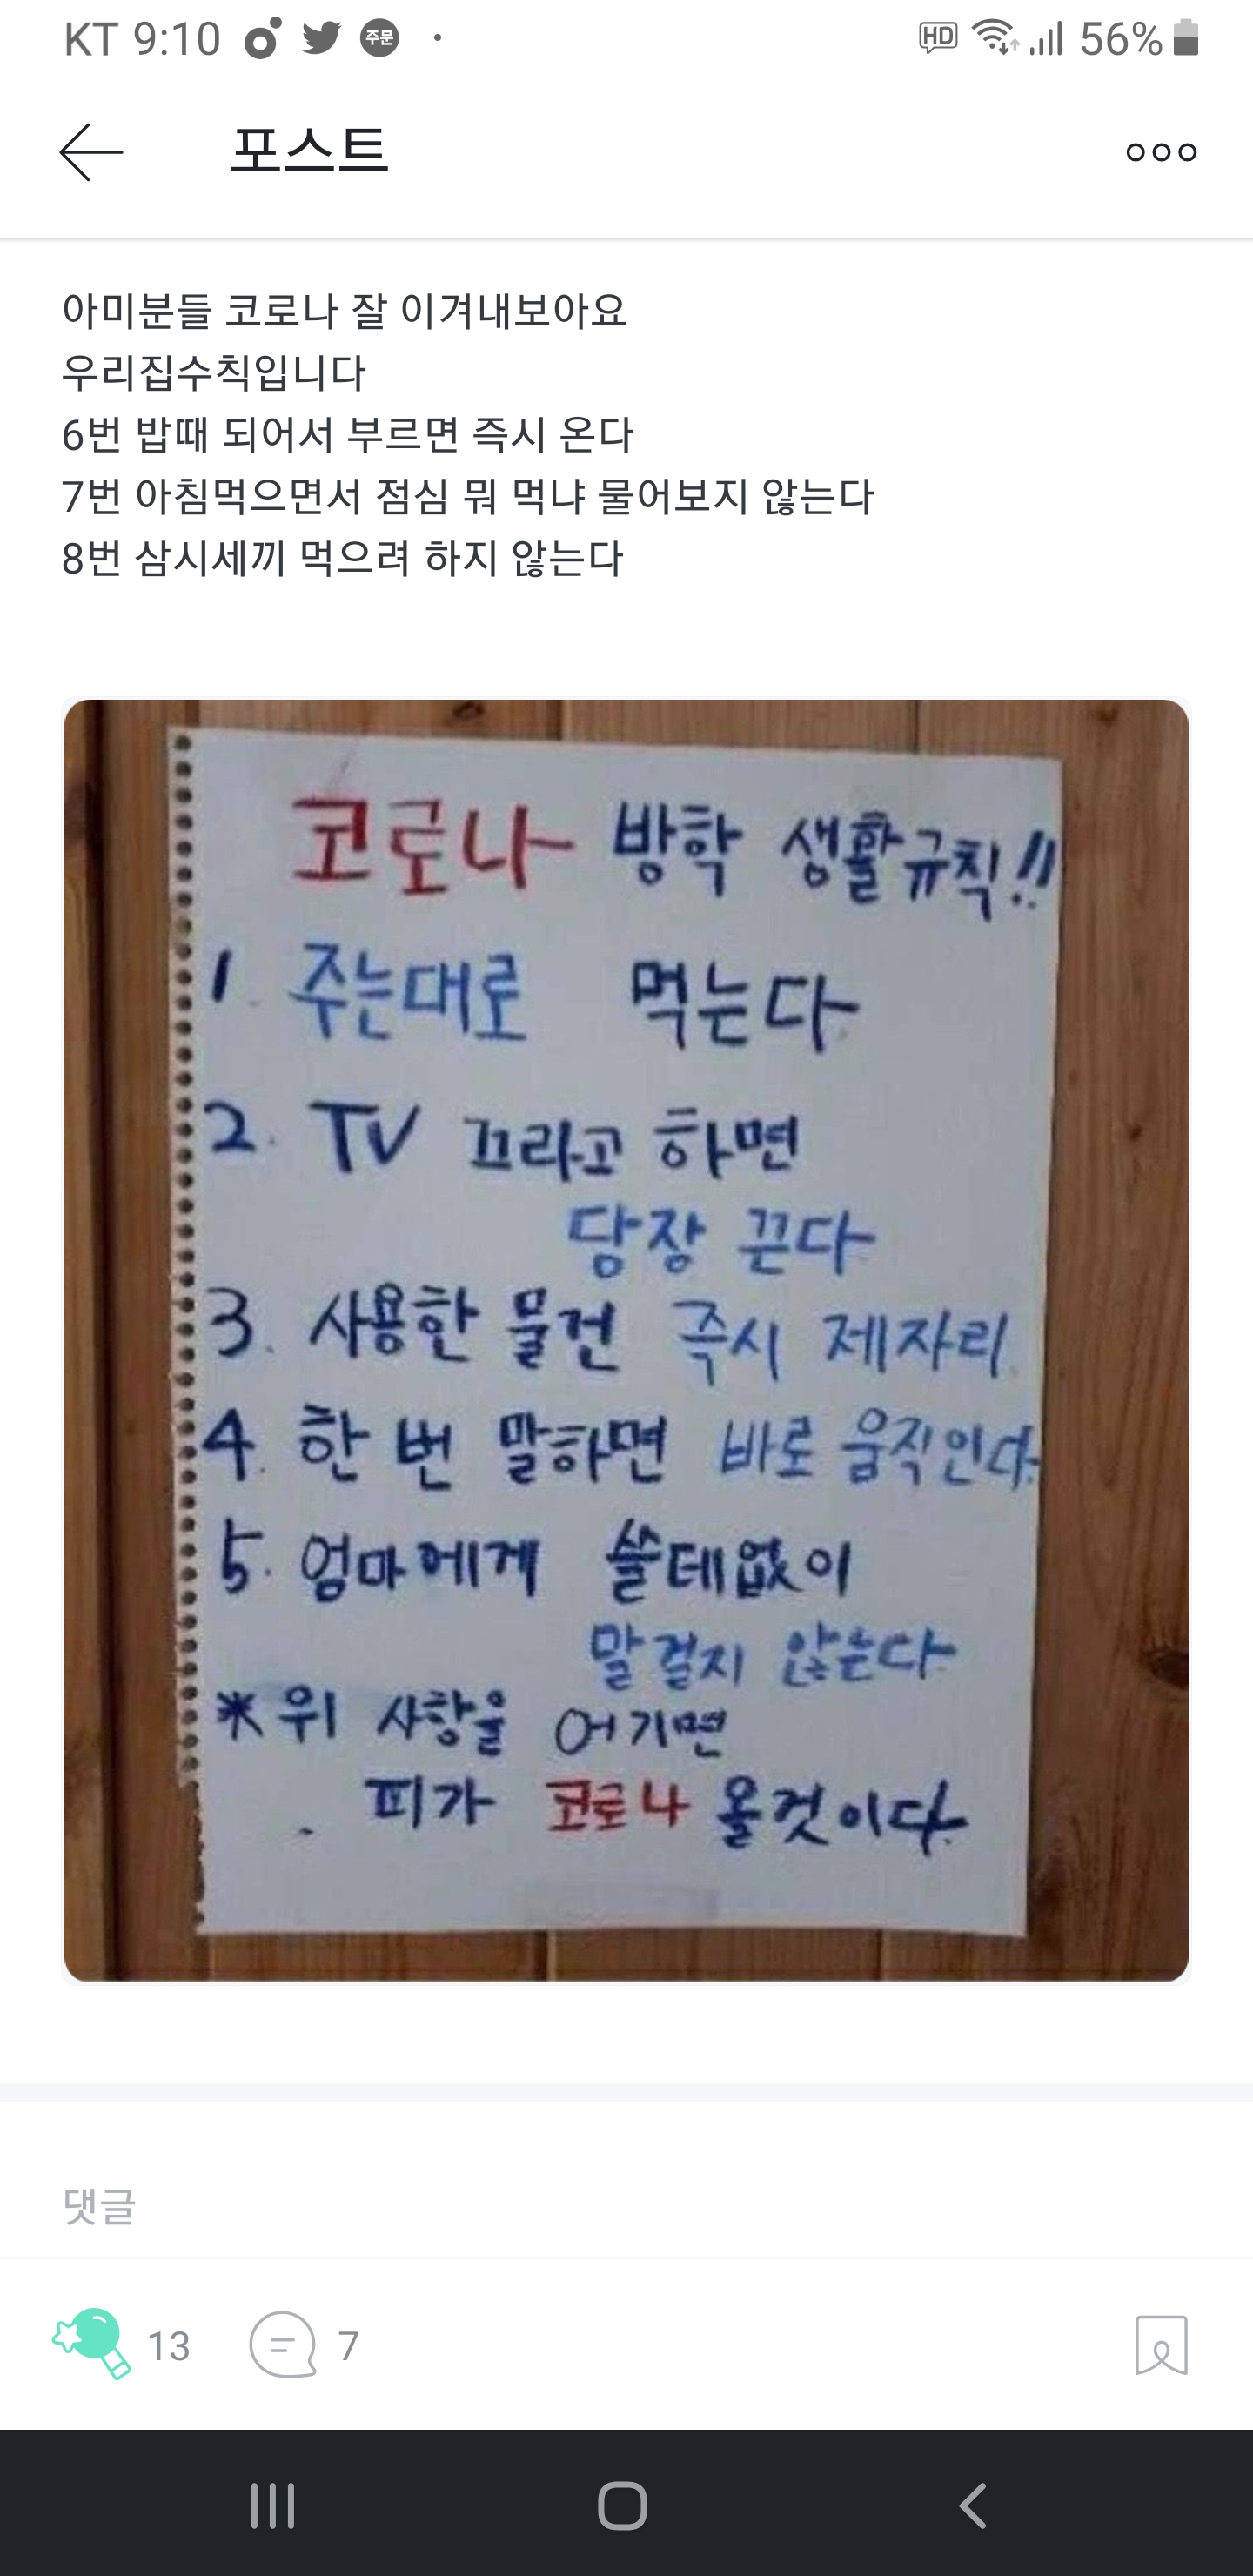 KT 9:10 주문 HD 56%
포스트
아미분들 코로나 잘 이겨내보아요
우리집수칙입니다
6번 밥때 되어서 부르면 즉시 온다
7번 아침먹으면서 점심 뭐 먹냐 물어보지 않는다
8번 삼시세끼 먹으려 하지 않는다
코로나 방학 생활규칙!!
1. 주는대로 먹는다
2. TV 끄라고 하면
당장 끈다
3. 사용한 물건 즉시 제자리.
4. 한 번 말하면 바로 움직인다.
5. 엄마에게 쓸데없이
말걸지 않는다
* 위 사항을 어기면
피가 코로나 올것이다.
댓글
13 7